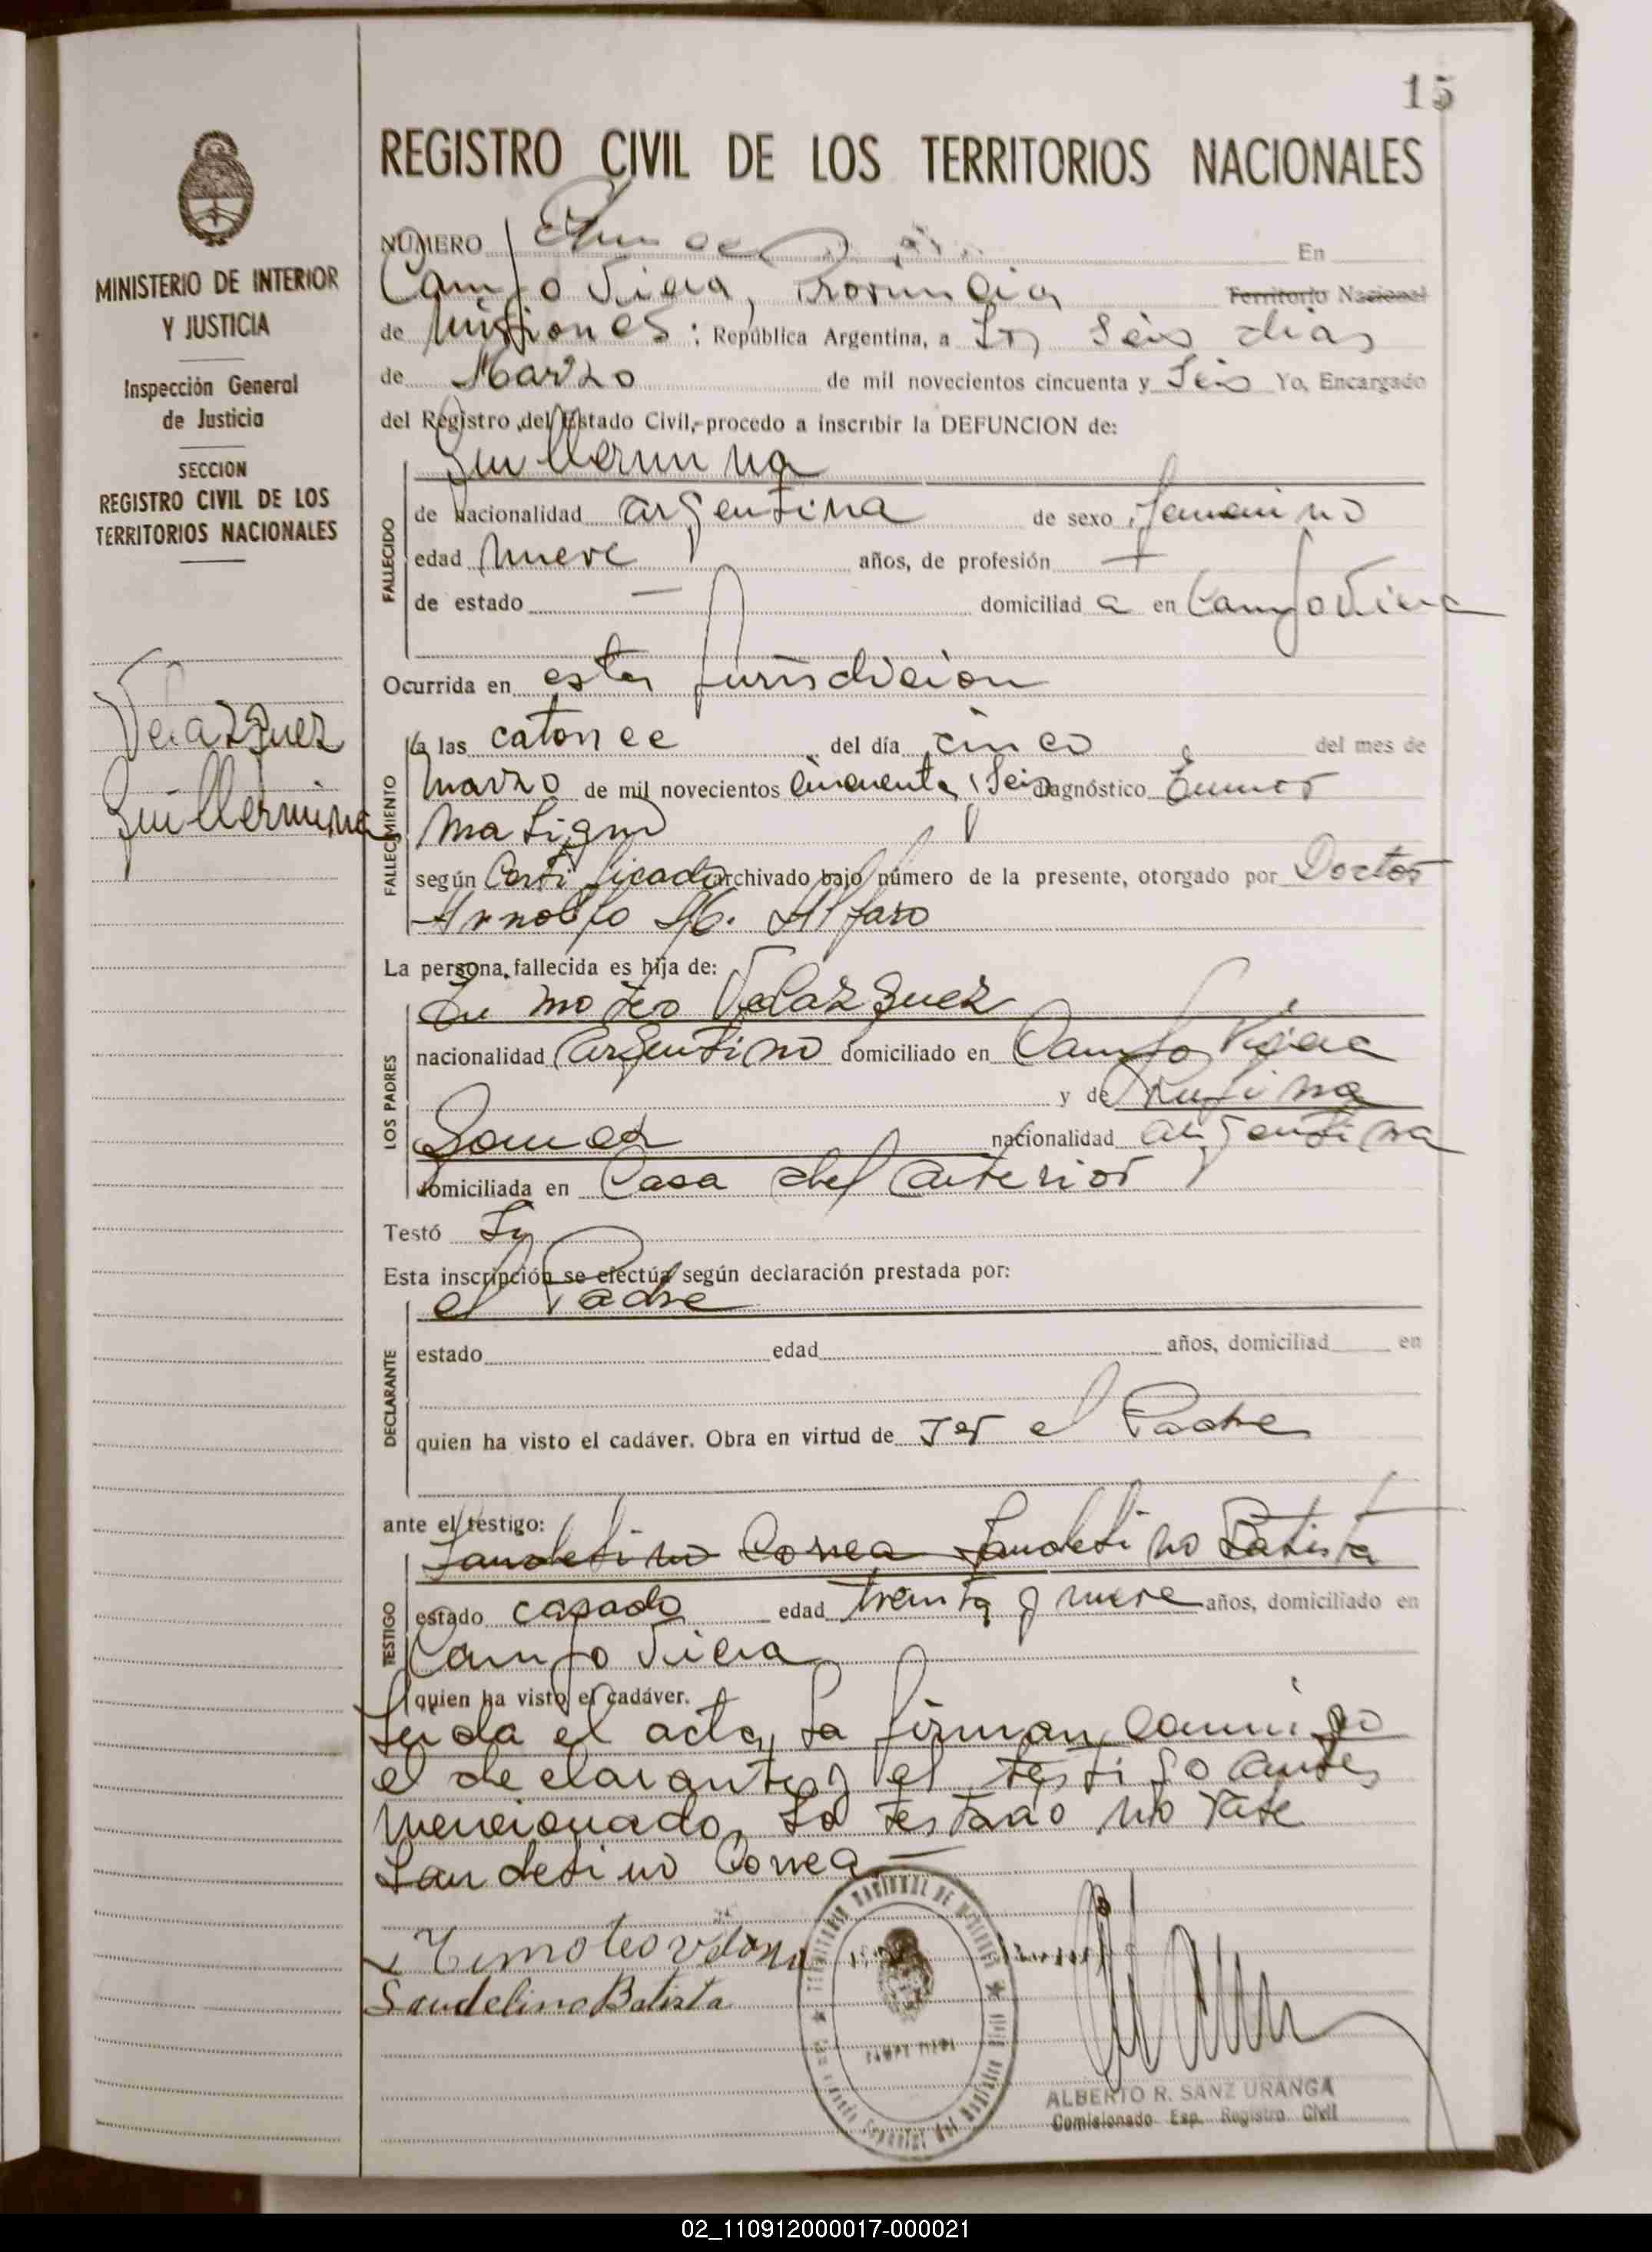 15
REGISTRO CIVIL DE LOS TERRITORIOS NACIONALES
MINISTERIO DE INTERIOR
Y JUSTICIA
Inspección General
de Justicia
SECCION
REGISTRO CIVIL DE LOS
TERRITORIOS NACIONALES
Velazquez
Guillermina
NÚMERO Quince En
Campo Viera, Provincia Territorio Nacional
de Misiones : República Argentina, a los seis dias
de Marzo de mil novecientos cincuenta y seis Yo, Encargado
del Registro del Estado Civil, procedo a inscribir la DEFUNCION de:
Guillermina
FALLECIDO
de nacionalidad argentina de sexo femenino
edad nueve años, de profesión
de estado — domiciliad a en Campo Viera
Ocurrida en esta jurisdicion
FALLECIMIENTO
a las catorce del día cinco del mes de
marzo de mil novecientos cincuenta y seis Diagnóstico Tumor
maligno
según Certificado archivado bajo número de la presente, otorgado por Doctor
Arnolfo M. Alfaro
La persona fallecida es hija de:
LOS PADRES
Velazquez
nacionalidad argentino domiciliado en Campo Viera
y de Rufina
Gomez nacionalidad argentina
domiciliada en Casa del anterior
Testó
Esta inscripción se efectúa según declaración prestada por:
DECLARANTE
el Padre
estado edad años, domiciliad en
quien ha visto el cadáver. Obra en virtud de ser el Padre
ante el testigo:
TESTIGO
Landelino Correa Landelino Batista
estado casado edad treinta y nueve años, domiciliado en
Campo Viera
quien ha visto el cadáver.
Leida el acta, la firman conmigo
el declarante y el testigo antes
mencionado. Lo testado no vale
Landelino Correa —
Timoteo
Landelino Batista
CAMPO VIERA
ALBERTO R. SANZ URANGA
Comisionado Esp. Registro Civil
02_110912000017-000021